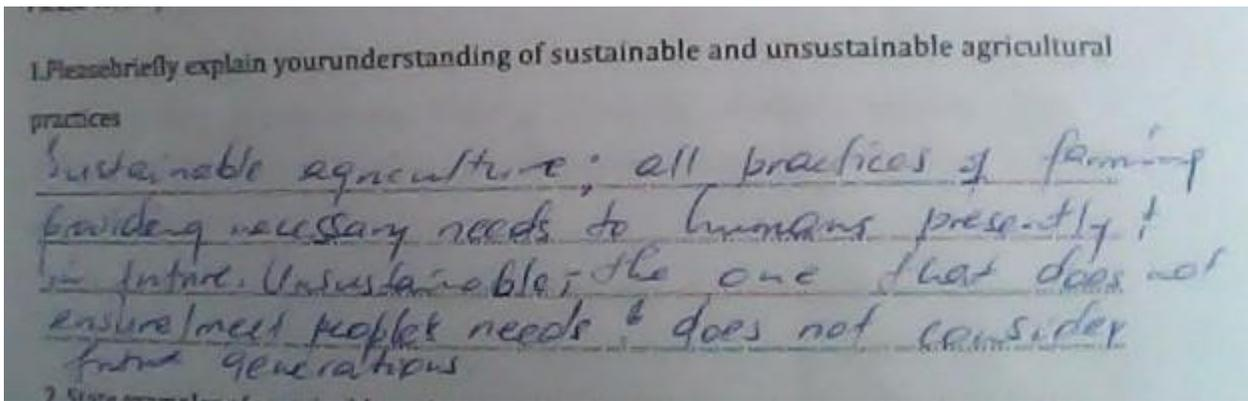 1.Pleasebriefly explain yourunderstanding of sustainable and unsustainable agricultural
practices
Sustainable agriculture; all practices of farming
providing necessary needs to humans presently &
in future. Unsustainable; the one that does not
ensure/meet peoples needs & does not consider
generations
2. State examples of